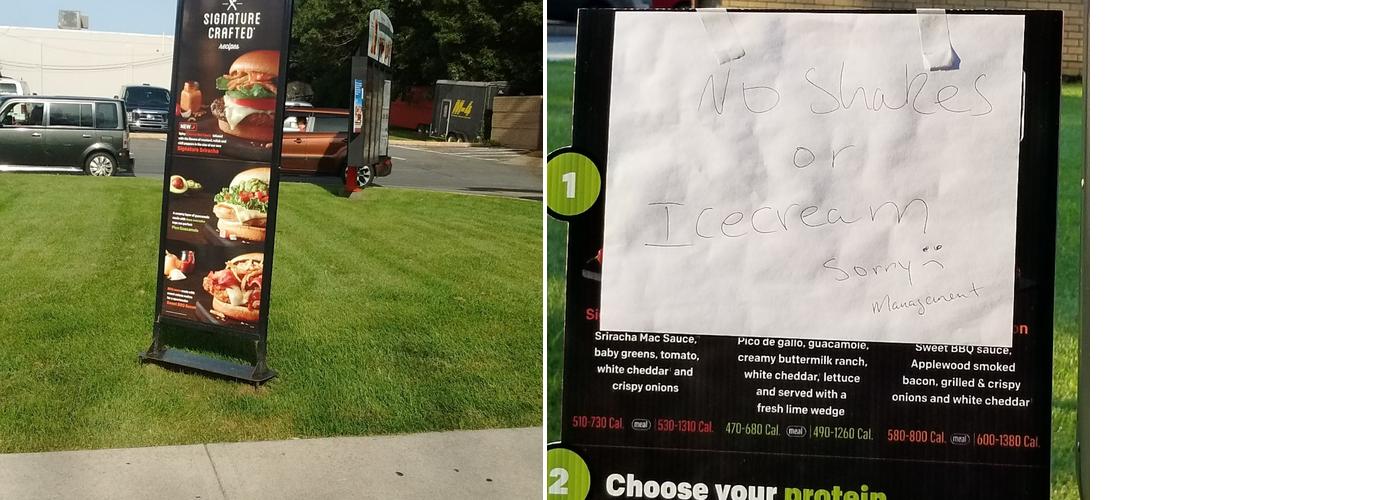 SIGNATURE
CRAFTED
recipes
NEW
Signature Sriracha
Pico Guacamole
Sweet BBQ Bacon
No Shakes
or
Icecream
Sorry
Management
1
Sriracha Mac Sauce,
baby greens, tomato,
white cheddar and
crispy onions
510-730 Cal. meal 530-1310 Cal.
Pico de gallo, guacamole,
creamy buttermilk ranch,
white cheddar, lettuce
and served with a
fresh lime wedge
470-680 Cal. meal 490-1260 Cal.
Sweet BBQ sauce,
Applewood smoked
bacon, grilled & crispy
onions and white cheddar
580-800 Cal. meal 600-1380 Cal.
2 Choose your protein